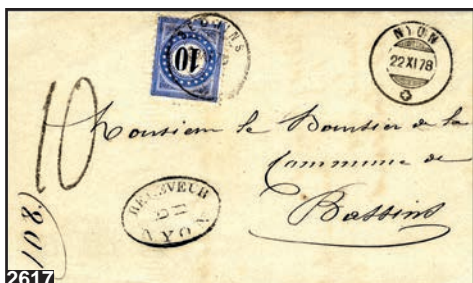 NYON
22 XI 78
10
10
Monsieur le Boursier de la
Commune de
Bassins
RECEVEUR
DE
NYON
2617